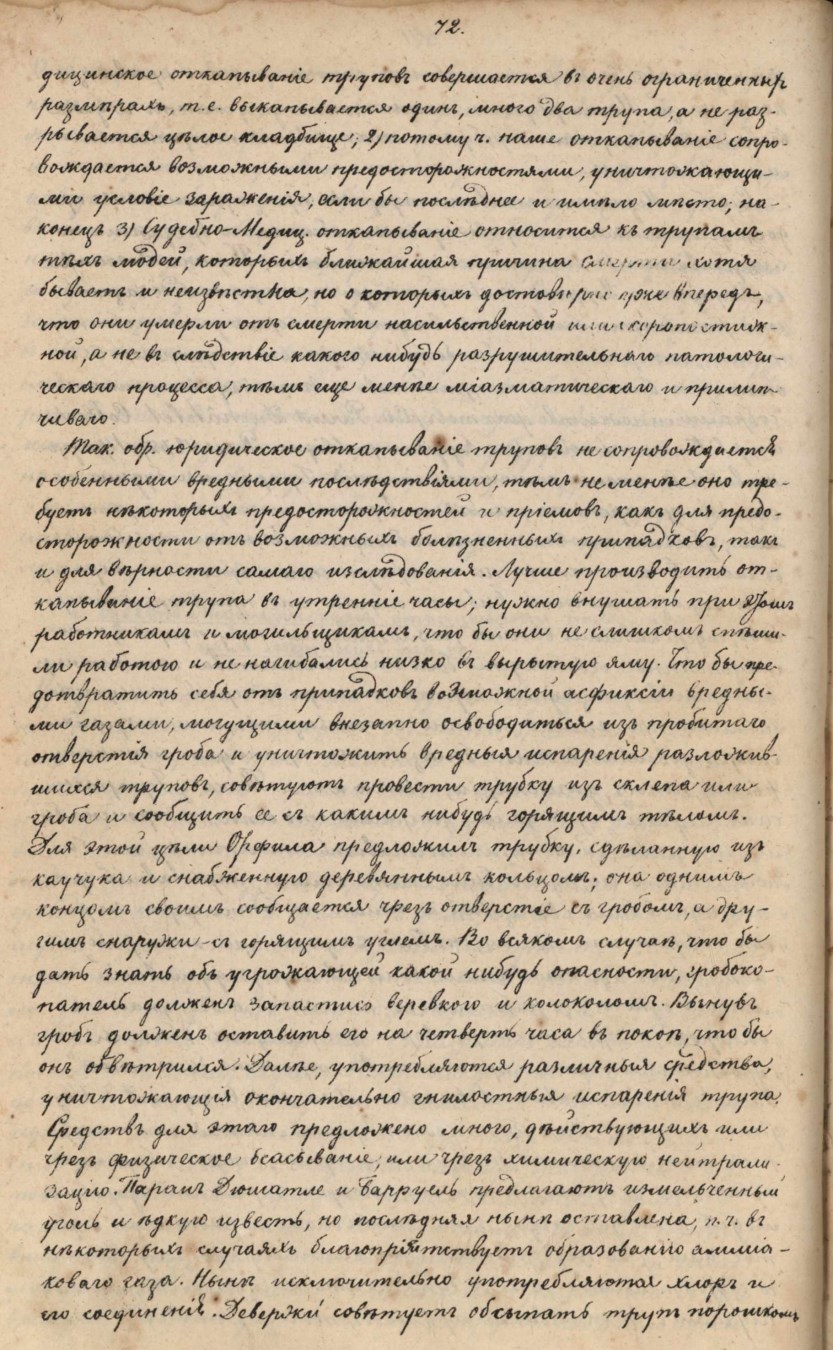 72.
дицинское откапываніе труповъ совершается въ очень ограниченныхъ
размѣрахъ, т. е. выкапывается одинъ, много два трупа, а не раз-
рывается цѣлое кладбище; 2) потому ч. наше откапываніе сопро-
вождается возможными предосторожностями, уничтожающи-
ми условіе зараженія, если бы послѣднее и имѣло мѣсто; на-
конецъ 3) Судебно-Медиц. откапываніе относится къ трупамъ
тѣхъ людей, которыхъ ближайшая причина смерти хотя
бываетъ и неизвѣстна, но о которыхъ достовѣрно уже впередъ,
что они умерли отъ смерти насильственной или скоропостиж-
ной, а не въ слѣдствіе какого нибудь разрушительнаго патологи-
ческаго процесса, тѣмъ еще менѣе міазматическаго и прилип-
чиваго.
Так. обр. юридическое откапываніе труповъ не сопровождается
особенными вредными послѣдствіями, тѣмъ не менѣе оно тре-
буетъ нѣкоторыхъ предосторожностей и пріемовъ, какъ для предо-
сторожности отъ возможныхъ болѣзненныхъ припадковъ, такъ
и для вѣрности самаго изслѣдованія. Лучше производить от-
капываніе трупа въ утренніе часы; нужно внушать при этомъ
работникамъ и могильщикамъ, что бы они не слишкомъ спѣши-
ли работою и не нагибались низко въ вырытую яму. Что бы пре-
дотвратить себя отъ припадковъ возможной асфиксіи вредны-
ми газами, могущими внезапно освободиться изъ пробитаго
отверстія гроба и уничтожить вредныя испаренія разложив-
шихся труповъ, совѣтуютъ провести трубку изъ склепа или
гроба и сообщить ее съ какимъ нибудь горящимъ тѣломъ.
Для этой цѣли Орфила предложилъ трубку, сдѣланную изъ
каучука и снабженную деревяннымъ кольцомъ; она однимъ
концомъ своимъ сообщается чрезъ отверстіе съ гробомъ, а дру-
гимъ снаружи - съ горящимъ углемъ. Во всякомъ случаѣ, что бы
дать знать объ угрожающей какой нибудь опасности, гробоко-
патель долженъ запастись веревкою и колоколомъ. Вынувъ
гробъ долженъ оставить его на четверть часа въ покоѣ, что бы
онъ обвѣтрился. Далѣе, употребляются различныя средства,
уничтожающія окончательно гнилостныя испаренія трупа.
Средствъ для этаго предложено много, дѣйствующихъ или
чрезъ физическое всасываніе, или чрезъ химическую нейтрали-
зацію. Паранъ Дюшатле и Барруель предлагаютъ измельченный
уголь и ѣдкую известь, но послѣдняя нынѣ оставлена, п. ч. въ
нѣкоторыхъ случаяхъ благопріятствуетъ образованію амміа-
коваго газа. Нынѣ исключительно употребляются хлоръ и
его соединенія. Девержи совѣтуетъ обсыпать трупъ порошкомъ